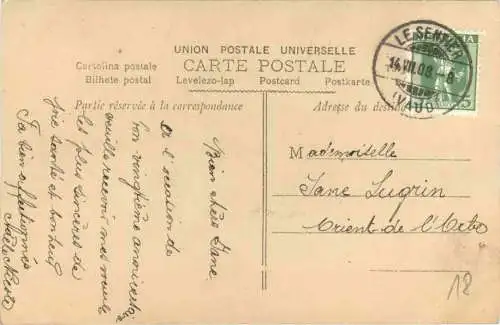 UNION POSTALE UNIVERSELLE
CARTE POSTALE
Cartolina postale
Bilhete postal
Levelezo-lap Postcard Postkarte
Partie réservée à la correspondance
Adresse du
LE SENTIER
14.VII.08
(VAUD)
5
Bien chère Jane
A l'occasion de
ton vingtième anniversaire
veuille recevoir mes
les plus sincères de
santé et bonheur
Ta bien affectionnée
Mademoiselle
Jane Lugrin
Orient de l'Orbe
18